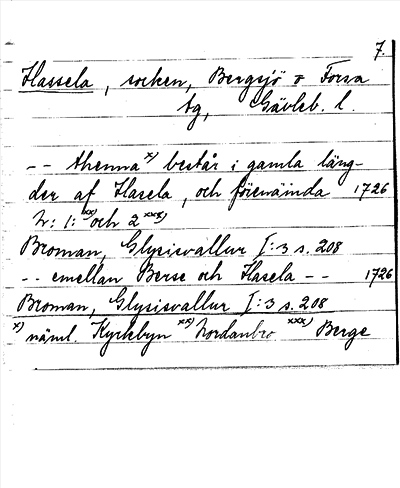 7.
Hassela, socken, Bergsjö o Forsa
tg, Gävleb. l.
-- thenna x) består i gamla läng-
der af Hasela, och förenäinda 1726
N: 1: xx) och 2 xxx)
Broman, Glysisvallur I:3 s. 208
-- emellan Berse och Hasela -- 1726
Broman, Glysisvallur I:3 s. 208
x) näml. Kyrkbyn xx) Nordanbro xxx) Berge